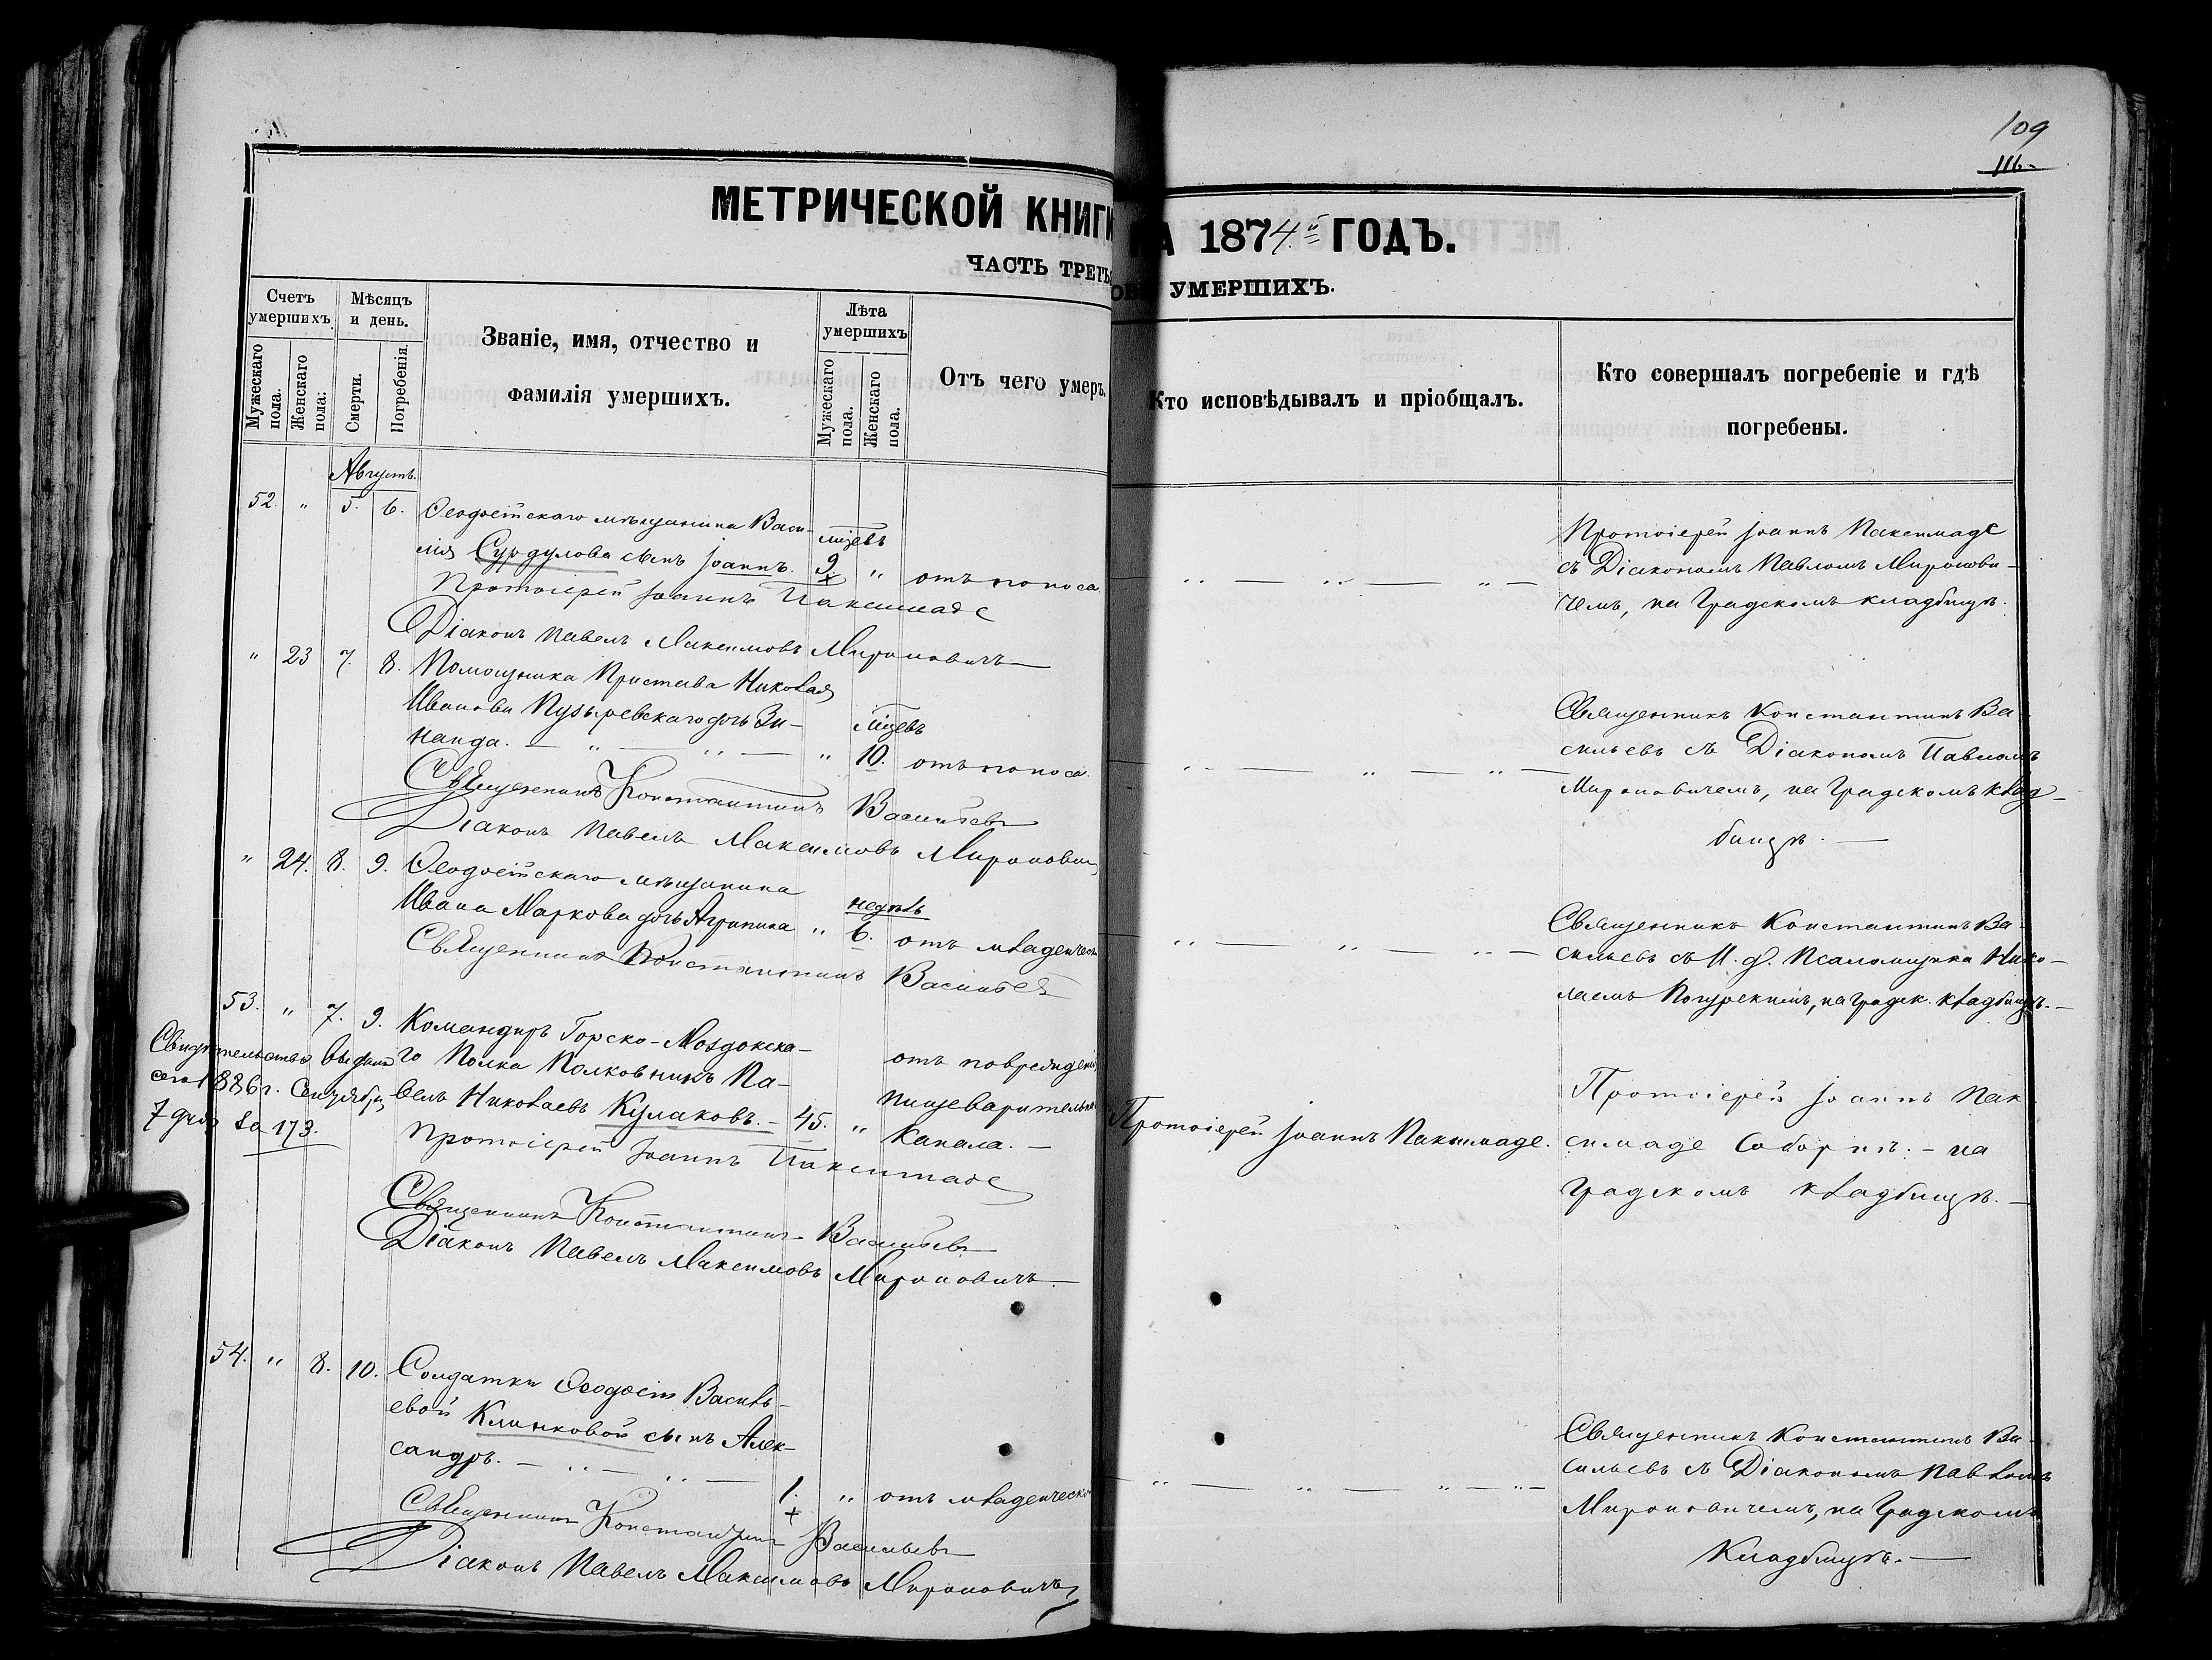 109
116
МЕТРИЧЕСКОЙ КНИГИ НА 1874й ГОДЪ.
ЧАСТЬ ТРЕТЬЯ УМЕРШИХЪ.
Счетъ умершихъ
Мѣсяцъ и день.
Званіе, имя, отчество и фамилія умершихъ.
Лѣта умершихъ
Отъ чего умеръ.
Кто исповѣдывалъ и пріобщалъ.
Кто совершалъ погребеніе и гдѣ погребены.
Мужескаго пола.
Женскаго пола.
Смерти.
Погребенія.
Мужескаго пола.
Женскаго пола.
Августъ.
52. " 5. 6. Ѳеодосійскаго мѣщанина Васи-
лія Сурдулова сынъ Іоаннъ. мѣсѣцевъ 9 " отъ поноса
Протоіерей Іоаннъ Паксимаде
Діаконъ Павелъ Максимовъ Мироновичъ
Протоіерей Іоаннъ Паксимаде
съ Діакономъ Павломъ Миронови-
чемъ, на Градскомъ кладбищѣ.
" 23 7. 8. Помощника Пристава Николая
Иванова Пузыревскаго дочь Зи-
наида. " 10. отъ поноса.
Священникъ Константинъ Васильевъ
Діаконъ Павелъ Максимовъ Мироновичъ
Священникъ Константинъ Ва-
сильевъ съ Діакономъ Павломъ
Мироновичемъ, на Градскомъ клад-
бищѣ.
" 24. 8. 9. Ѳеодосійскаго мѣщанина
Ивана Маркова дочь Агрипина " недѣль 6. отъ младенческ
Священникъ Константинъ Васильевъ
Священникъ Константинъ Ва-
сильевъ съ И. д. Псаломщика Нико-
лаемъ на градск. кладбищѣ.
53. " 7. 9. Командиръ Горско-Моздокска-
го Полка Полковникъ Па-
велъ Николаевъ Кулаковъ. 45. "
отъ поврежденія
пищеварительн
канала.
Протоіерей Іоаннъ Паксимаде.
Протоіерей Іоаннъ Пак
симаде Соборнѣ. на
Градскомъ кладбищѣ.
Свидѣтельство выдано
сего 1886 г. Сентября
7 дня за 173.
Протоіерей Іоаннъ Паксимаде
Священникъ Константинъ Васильевъ
Діаконъ Павелъ Максимовъ Мироновичъ
54. " 8. 10. Солдатки Ѳеодосіи Василь-
евой Климковой сынъ Алек-
сандръ. 1. " отъ младенческо
Священникъ Константинъ Васильевъ
Діаконъ Павелъ Максимовъ Мироновичъ
Священникъ Константинъ Ва-
сильевъ съ Діакономъ Павломъ
Мироновичемъ, на Градскомъ
Кладбищѣ.